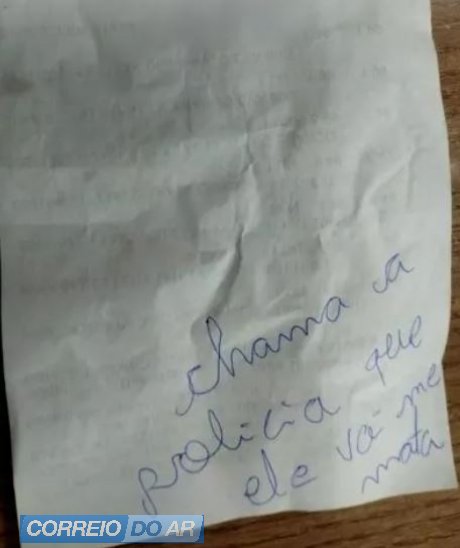 chama a
policia que
ele vai me
mata
CORREIO DO AR